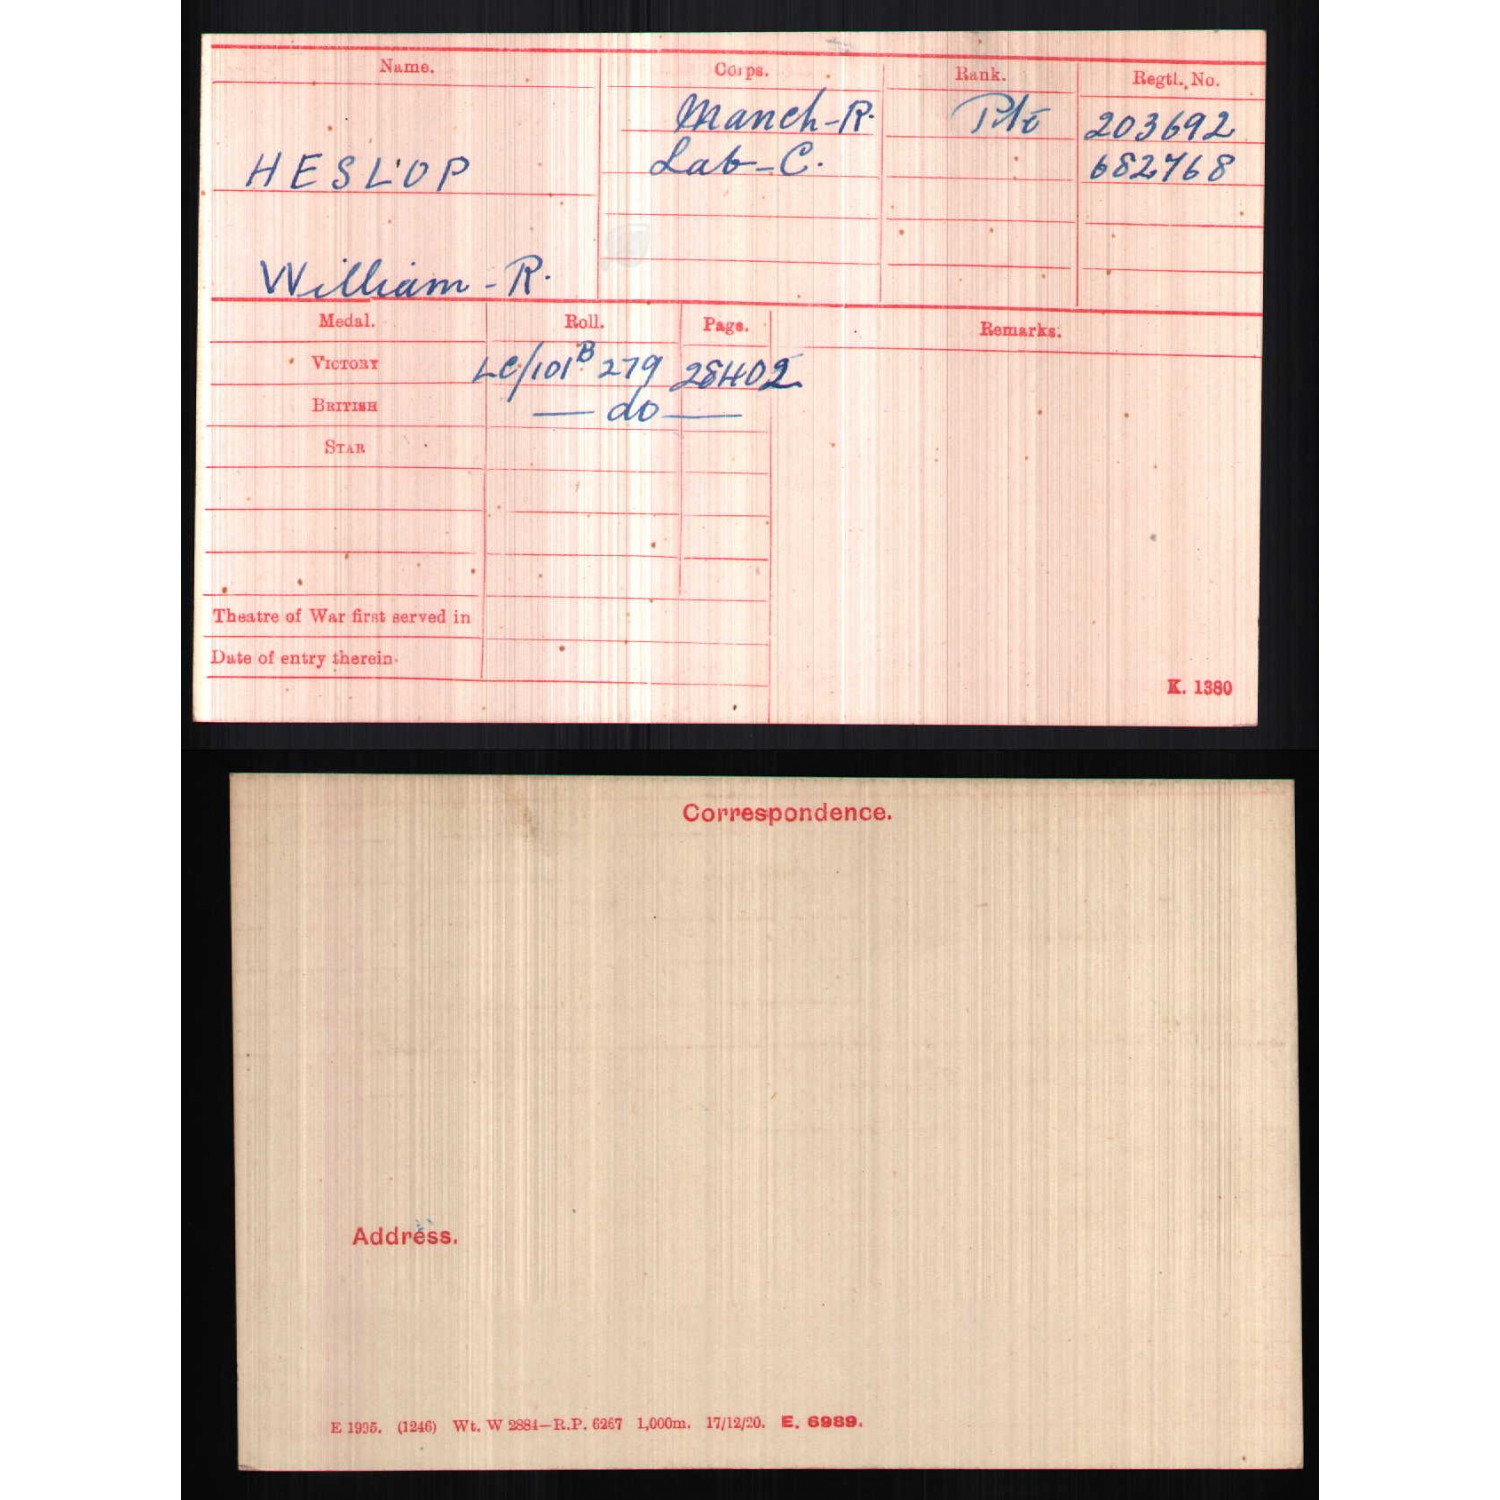 Name. Corps. Rank. Regtl. No.
Manch-R. Pte 203692
HESLOP Lab-C. 682768
William-R.
Medal. Roll. Page. Remarks.
VICTORY LC/101B 279 28402
BRITISH — do —
STAR
Theatre of War first served in
Date of entry therein
K. 1380
Correspondence.
Address.
E 1995. (1246) Wt. W 2884—R.P. 6267 1,000m. 17/12/20. E. 6989.